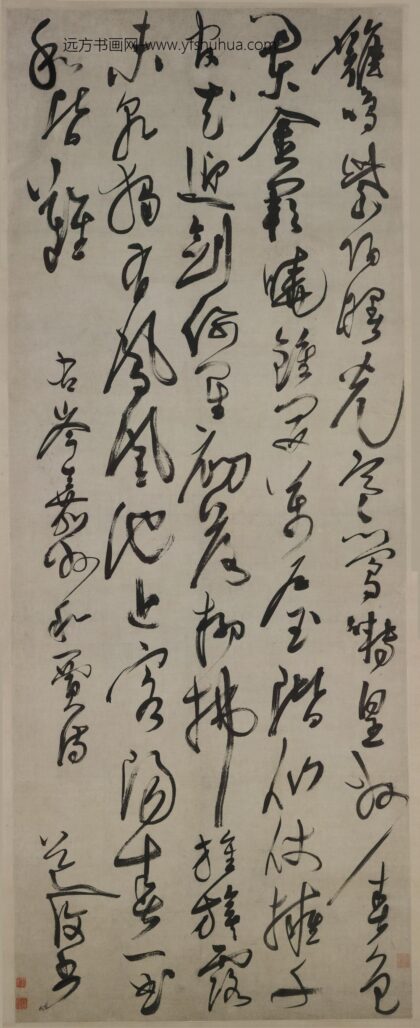 远方书画网-www.yfshuhua.com
雞鳴紫陌曙光寒鶯囀皇州春色
闌金闕曉鐘開萬戶玉階仙仗擁千
官花迎劍佩星初落柳拂旌旗露
未乾獨有鳳凰池上客陽春一曲
和皆難
右岑嘉州和賈詩 道復書